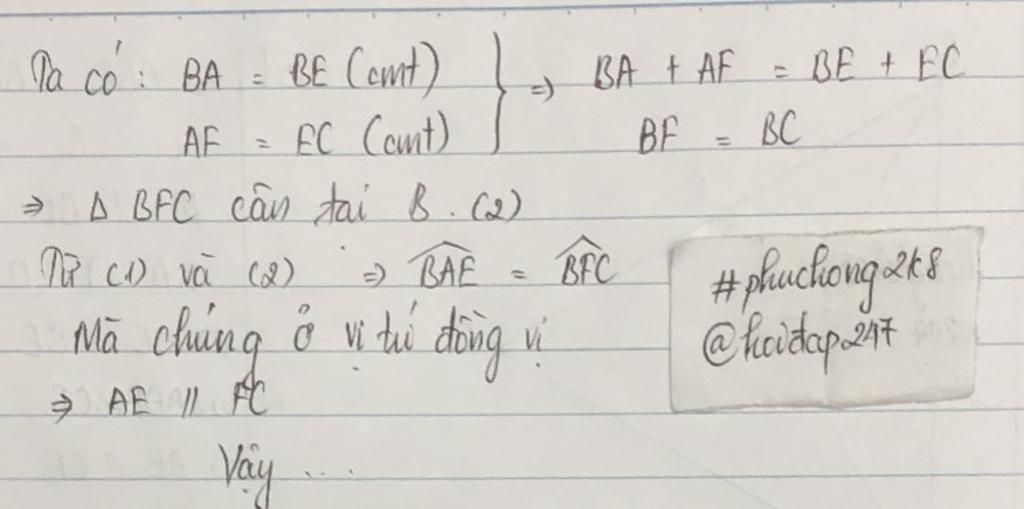 Ta có : BA = BE (cmt) } ⇒ BA + AF = BE + EC
AF = EC (cmt) BF = BC
⇒ Δ BFC cân tại B . (2)
Từ (1) và (2) ⇒ \widehat{BAE} = \widehat{BFC}
Mà chúng ở vị trí đồng vị
⇒ AE // FC
Vậy ....
#phuchong2k8
@hoidap247